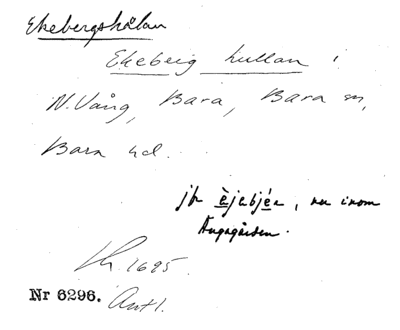 Ekebergshålan
Ekebeig hullan i
N. Vång, Bara, Bara sn,
Bara hd.
jfr èjebjéa, nu inom
Ängagården.
Lh. 1695.
Nr 6296. Antl.